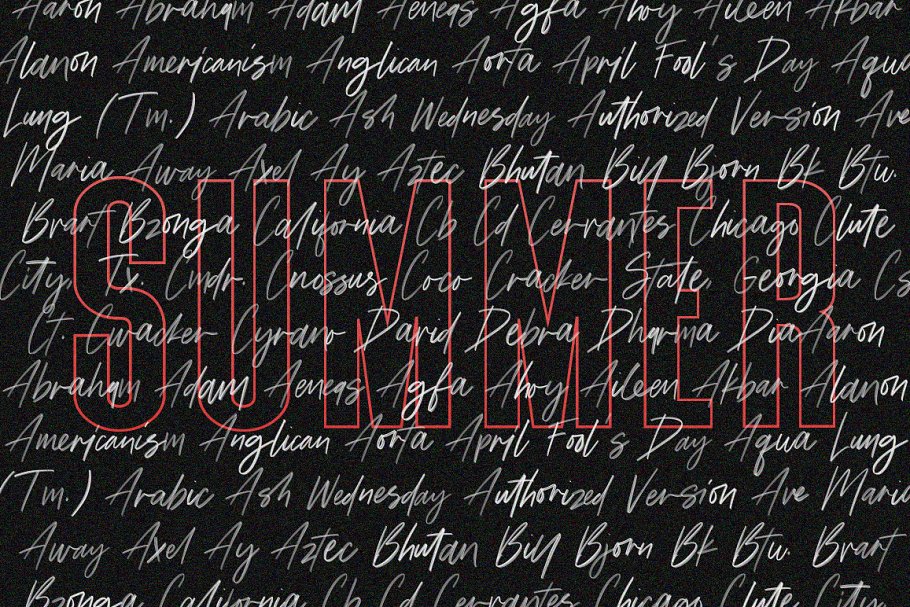 Aaron Abraham Adam Aeneas Agfa Ahoy Aileen Akbar
Alanon Americanism Anglican Aorta April Fool's Day Aqua
Lung (Tm.) Arabic Ash Wednesday Authorized Version Ave
Maria Away Axel Ay Aztec Bhutan Bill Bjorn Bk Btu.
Brart Bzonga California Cb Cd Cervantes Chicago Clute
City, Tx. Cmdr. Cnossus Coco Cracker State, Georgia Cs
Ct. Cwacker Cyrano David Debra Dharma DiaAaron
SUMMER
Abraham Adam Aeneas Agfa Ahoy Aileen Akbar Alanon
Americanism Anglican Aorta April Fool's Day Aqua Lung
(Tm.) Arabic Ash Wednesday Authorized Version Ave Maria
Away Axel Ay Aztec Bhutan Bill Bjorn Bk Btu. Brart
Bzonga California Cb Cd Cervantes Chicago Clute City,